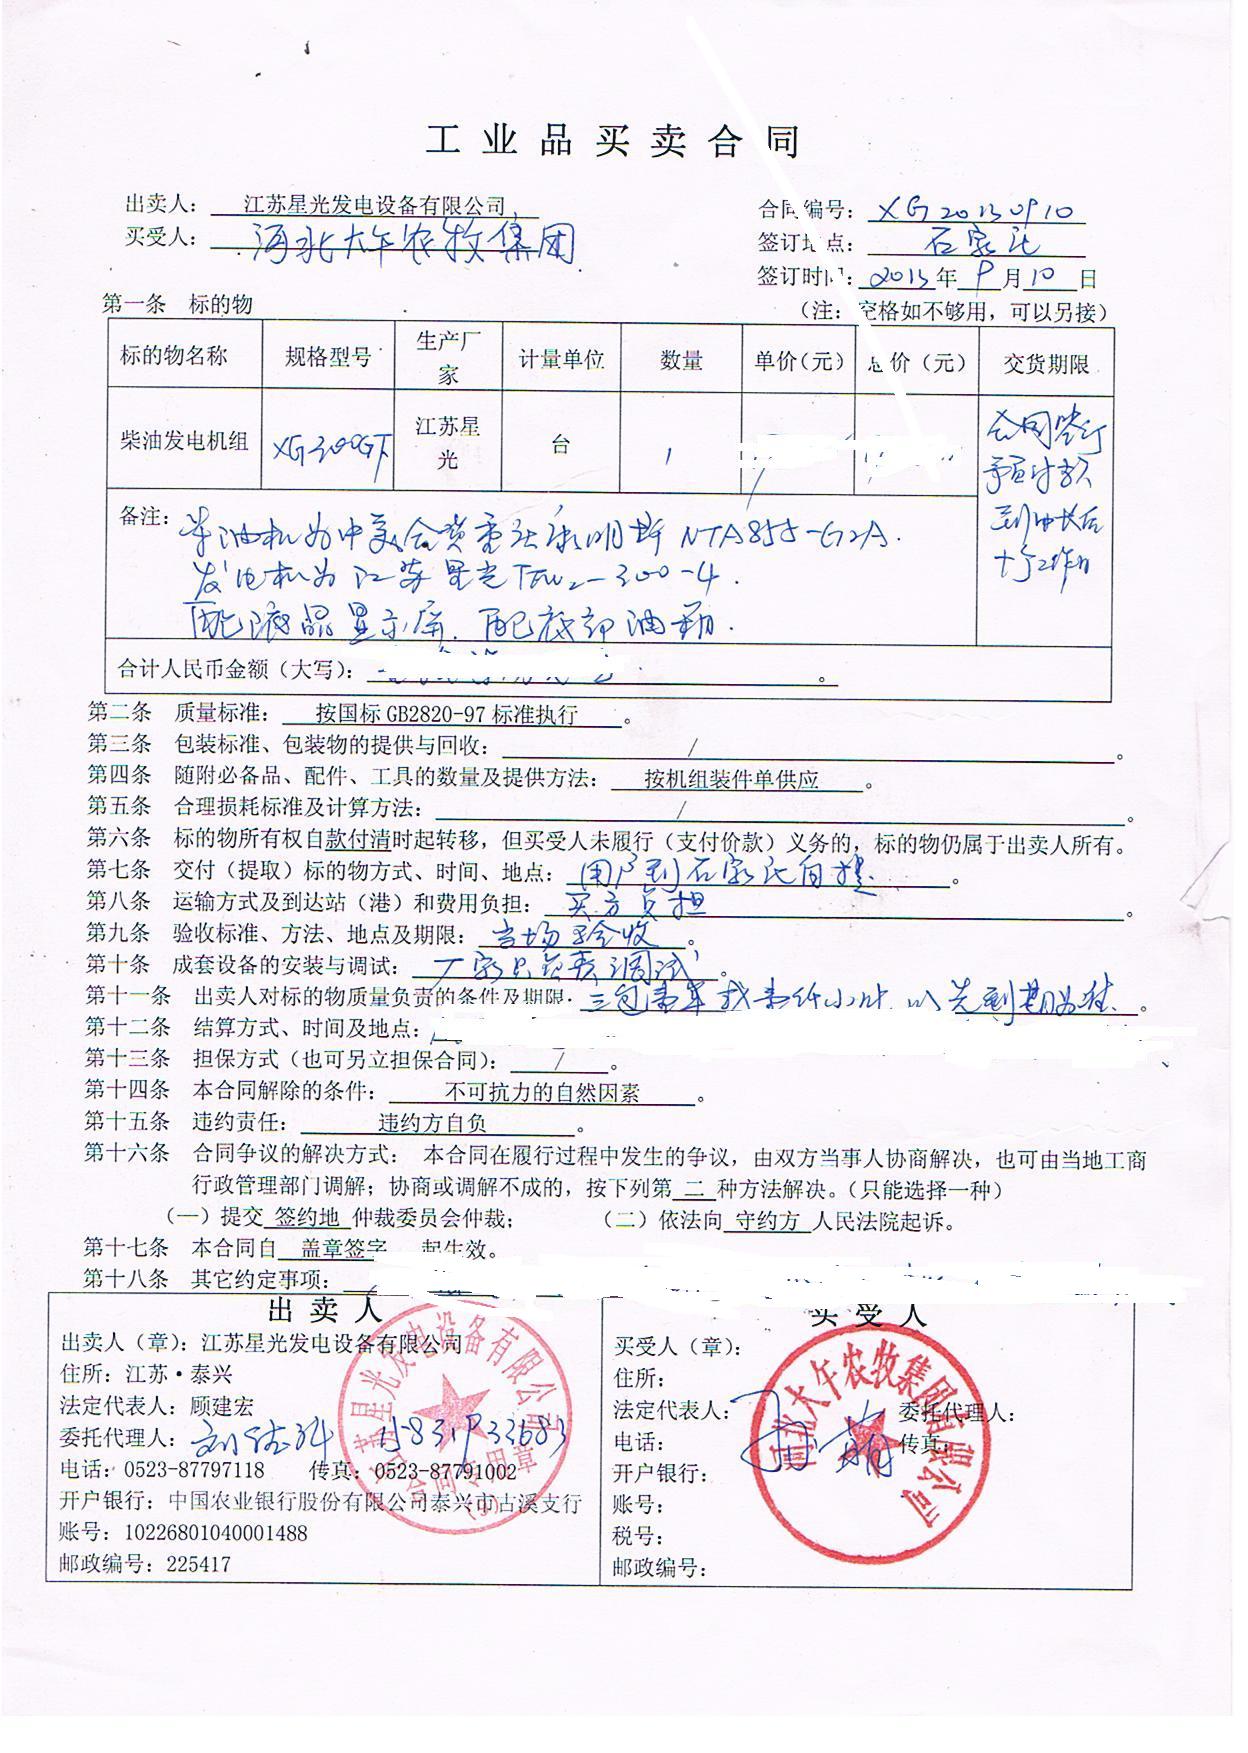 工业品买卖合同
出卖人： 江苏星光发电设备有限公司
买受人： 河北大午农牧集团
合同编号： XG20130910
签订地点： 石家庄
签订时间： 2013年9月10日
第一条 标的物
（注：空格如不够用，可以另接）
标的物名称 规格型号 生产厂家 计量单位 数量 单价（元） 总价（元） 交货期限
柴油发电机组 XG300GF 江苏星光 台 1
合同签订
预付款
到账后
十个工作日
备注：柴油机为中美合资重庆康明斯 NTA855-G2A.
发电机为江苏星光TFW2-300-4.
配液晶显示屏.配底部油箱.
合计人民币金额（大写）： 。
第二条 质量标准： 按国标GB2820-97标准执行 。
第三条 包装标准、包装物的提供与回收： / 。
第四条 随附必备品、配件、工具的数量及提供方法： 按机组装件单供应 。
第五条 合理损耗标准及计算方法： / 。
第六条 标的物所有权自款付清时起转移，但买受人未履行（支付价款）义务的，标的物仍属于出卖人所有。
第七条 交付（提取）标的物方式、时间、地点： 用户到石家庄自提. 。
第八条 运输方式及到达站（港）和费用负担： 买方负担 。
第九条 验收标准、方法、地点及期限： 当场验收 。
第十条 成套设备的安装与调试： 厂家只负责调试 。
第十一条 出卖人对标的物质量负责的条件及期限： 三包壹年或壹仟小时.以先到期为准. 。
第十二条 结算方式、时间及地点：
第十三条 担保方式（也可另立担保合同）： / 。
第十四条 本合同解除的条件： 不可抗力的自然因素 。
第十五条 违约责任： 违约方自负 。
第十六条 合同争议的解决方式： 本合同在履行过程中发生的争议，由双方当事人协商解决，也可由当地工商
行政管理部门调解；协商或调解不成的，按下列第 二 种方法解决。（只能选择一种）
（一）提交 签约地 仲裁委员会仲裁； （二）依法向 守约方 人民法院起诉。
第十七条 本合同自 盖章签字 起生效。
第十八条 其它约定事项：
出卖人
出卖人（章）：江苏星光发电设备有限公司
住所：江苏·泰兴
法定代表人：顾建宏
委托代理人：
电话：0523-87797118 传真：0523-87791002
开户银行：中国农业银行股份有限公司泰兴市古溪支行
账号：10226801040001488
邮政编号：225417
江苏星光发电设备有限公司
合同专用章
买受人
买受人（章）：
住所：
法定代表人： 委托代理人：
电话： 传真：
开户银行：
账号：
税号：
邮政编号：
河北大午农牧集团有限公司